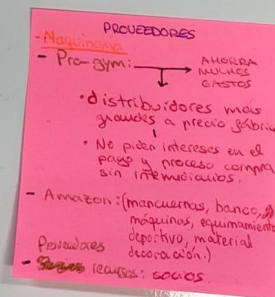 PROVEEDORES
- Maquinaria
- Pro-gym: → AHORRA
MUCHOS
GASTOS
• distribuidores más
grandes a precio fábrica
• No piden intereses en el
pago y proceso compra
sin intermediarios.
- Amazon: (mancuernas, banco,
máquinas, equipamiento
deportivo, material
decoración.)
Proveedores
- recursos: socios.